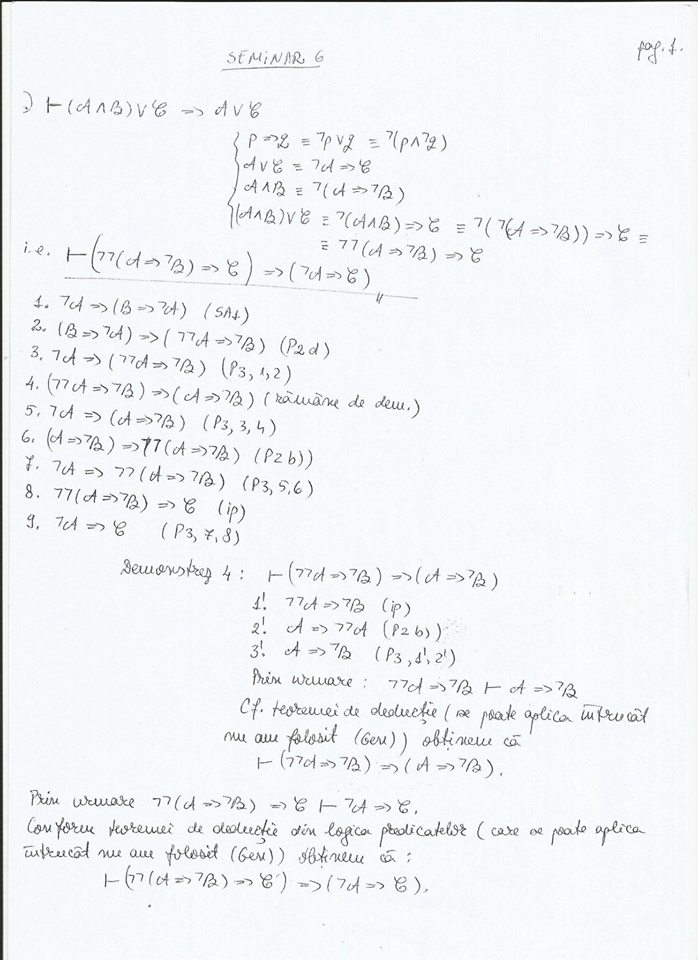 SEMINAR 6
pag. 1.
) ⊢ (A∧B)∨C ⇒ A∨C
p ⇒ q ≡ ⌝p∨q ≡ ⌝(p∧⌝q)
A∨C ≡ ⌝A ⇒ C
A∧B ≡ ⌝(A ⇒ ⌝B)
(A∧B)∨C ≡ ⌝(A∧B) ⇒ C ≡ ⌝(⌝(A ⇒ ⌝B)) ⇒ C ≡
≡ ⌝⌝(A ⇒ ⌝B) ⇒ C
i.e. ⊢ (⌝⌝(A ⇒ ⌝B) ⇒ C) ⇒ (⌝A ⇒ C)
1. ⌝A ⇒ (B ⇒ ⌝A) (SA1)
2. (B ⇒ ⌝A) ⇒ (⌝⌝A ⇒ ⌝B) (P2d)
3. ⌝A ⇒ (⌝⌝A ⇒ ⌝B) (P3, 1, 2)
4. (⌝⌝A ⇒ ⌝B) ⇒ (A ⇒ ⌝B) (rămâne de dem.)
5. ⌝A ⇒ (A ⇒ ⌝B) (P3, 3, 4)
6. (A ⇒ ⌝B) ⇒ ⌝⌝(A ⇒ ⌝B) (P2b))
7. ⌝A ⇒ ⌝⌝(A ⇒ ⌝B) (P3, 5, 6)
8. ⌝⌝(A ⇒ ⌝B) ⇒ C (ip)
9. ⌝A ⇒ C (P3, 7, 8)
Demonstrez 4: ⊢ (⌝⌝A ⇒ ⌝B) ⇒ (A ⇒ ⌝B)
1'. ⌝⌝A ⇒ ⌝B (ip)
2'. A ⇒ ⌝⌝A (P2b))
3'. A ⇒ ⌝B (P3, 1', 2')
Prin urmare: ⌝⌝A ⇒ ⌝B ⊢ A ⇒ ⌝B
Cf. teoremei de deducție (se poate aplica întrucât
nu am folosit (Gen)) obținem că
⊢ (⌝⌝A ⇒ ⌝B) ⇒ (A ⇒ ⌝B).
Prin urmare ⌝⌝(A ⇒ ⌝B) ⇒ C ⊢ ⌝A ⇒ C.
Conform teoremei de deducție din logica predicatelor (care se poate aplica
întrucât nu am folosit (Gen)) obținem că:
⊢ (⌝⌝(A ⇒ ⌝B) ⇒ C) ⇒ (⌝A ⇒ C).